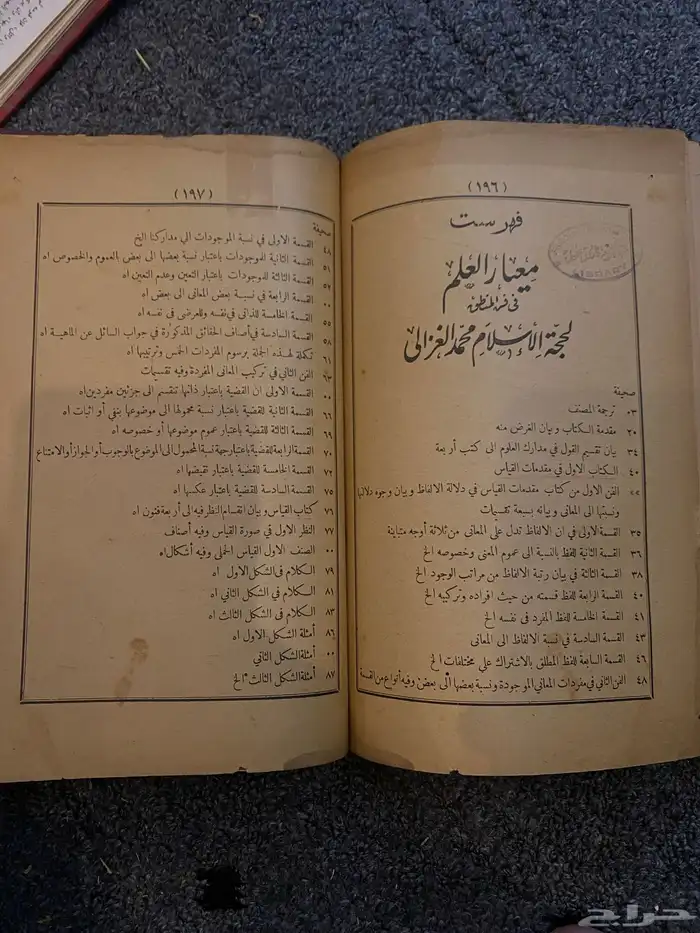 (١٩٦)
فهرست
معيار العلم
في فن المنطق
لحجة الإسلام محمد الغزالى
صحيفة
٠٣ ترجمة المصنف
٢٥ مقدمة الكتاب وبيان الغرض منه
٣٤ بيان تقسيم القول في مدارك العلوم الى كتب أربعة
٤٥ الكتاب الاول في مقدمات القياس
»» الفن الاول من كتاب مقدمات القياس في دلالة الالفاظ وبيان وجوه دلالتها
ونسبتها الى المعانى وبيانه بسبعة تقسيمات
٣٥ القسمة الاولى في ان الالفاظ تدل على المعانى من ثلاثة أوجه متباينة
٣٦ القسمة الثانية للفظ بالنسبة الى عموم المعنى وخصوصه الخ
٣٨ القسمة الثالثة في بيان رتبة الالفاظ من مراتب الوجود الخ
٤٠ القسمة الرابعة للفظ قسمته من حيث افراده وتركيبه الخ
٤١ القسمة الخامسة للفظ المفرد فى نفسه الخ
٤٣ القسمة السادسة في نسبة الالفاظ الى المعانى
٤٦ القسمة السابعة للفظ المطلق بالاشتراك على مختلفات الخ
٤٨ الفن الثاني في مفردات المعاني الموجودة ونسبة بعضها الى بعض وفيه أنواع من القسمة
(١٩٧)
صحيفة
٤٨ القسمة الاولى في نسبة الموجودات الي مداركنا الخ
٥١ القسمة الثانية للموجودات باعتبار نسبة بعضها الى بعض العموم والخصوص اه
٥٢ القسمة الثالثة للوجودات باعتبار التعين وعدم التعين اه
٠٠ القسمة الرابعة في نسبة بعض المعانى الى بعض اه
٥٥ القسمة الخامسة للذاتى في نفسه وللعرضى فى نفسه اه
٥٨ القسمة السادسة في أصناف الحقائق المذكورة في جواب السائل عن الماهية اه
٦١ تكملة لهذه الجملة برسوم المفردات الخمس وترتيبها اه
٦٣ الفن الثاني في تركيب المعانى المفردة وفيه تقسيمات
٠٠ القسمة الاولى ان القضية باعتبار ذاتها تنقسم الى جزئين مفردين اه
٦٦ القسمة الثانية للقضية باعتبار نسبة محمولها الى موضوعها بنفي أو اثبات اه
٦٩ القسمة الثالثة للقضية باعتبار عموم موضوعها أو خصوصه اه
٧٠ القسمة الرابعة للقضية باعتبار جهة نسبة المحمول الى الموضوع بالوجوب أو الجواز أو الامتناع
٧١ القسمة الخامسة للقضية باعتبار نقيضها اه
٧٥ القسمة السادسة للقضية باعتبار عكسها اه
٧٦ كتاب القياس وبيان انقسام النظر فيه الى أربعة فنون اه
٧٧ النظر الاول في صورة القياس وفيه أصناف
٠٠ الصنف الاول القياس الحملى وفيه أشكال اه
٧٩ الكلام فى الشكل الاول اه
٨١ الكلام في الشكل الثاني اه
٨٣ الكلام فى الشكل الثالث اه
٨٦ أمثلة الشكل الاول اه
٠٠ أمثلة الشكل الثاني
٨٧ أمثلة الشكل الثالث الخ
حراج